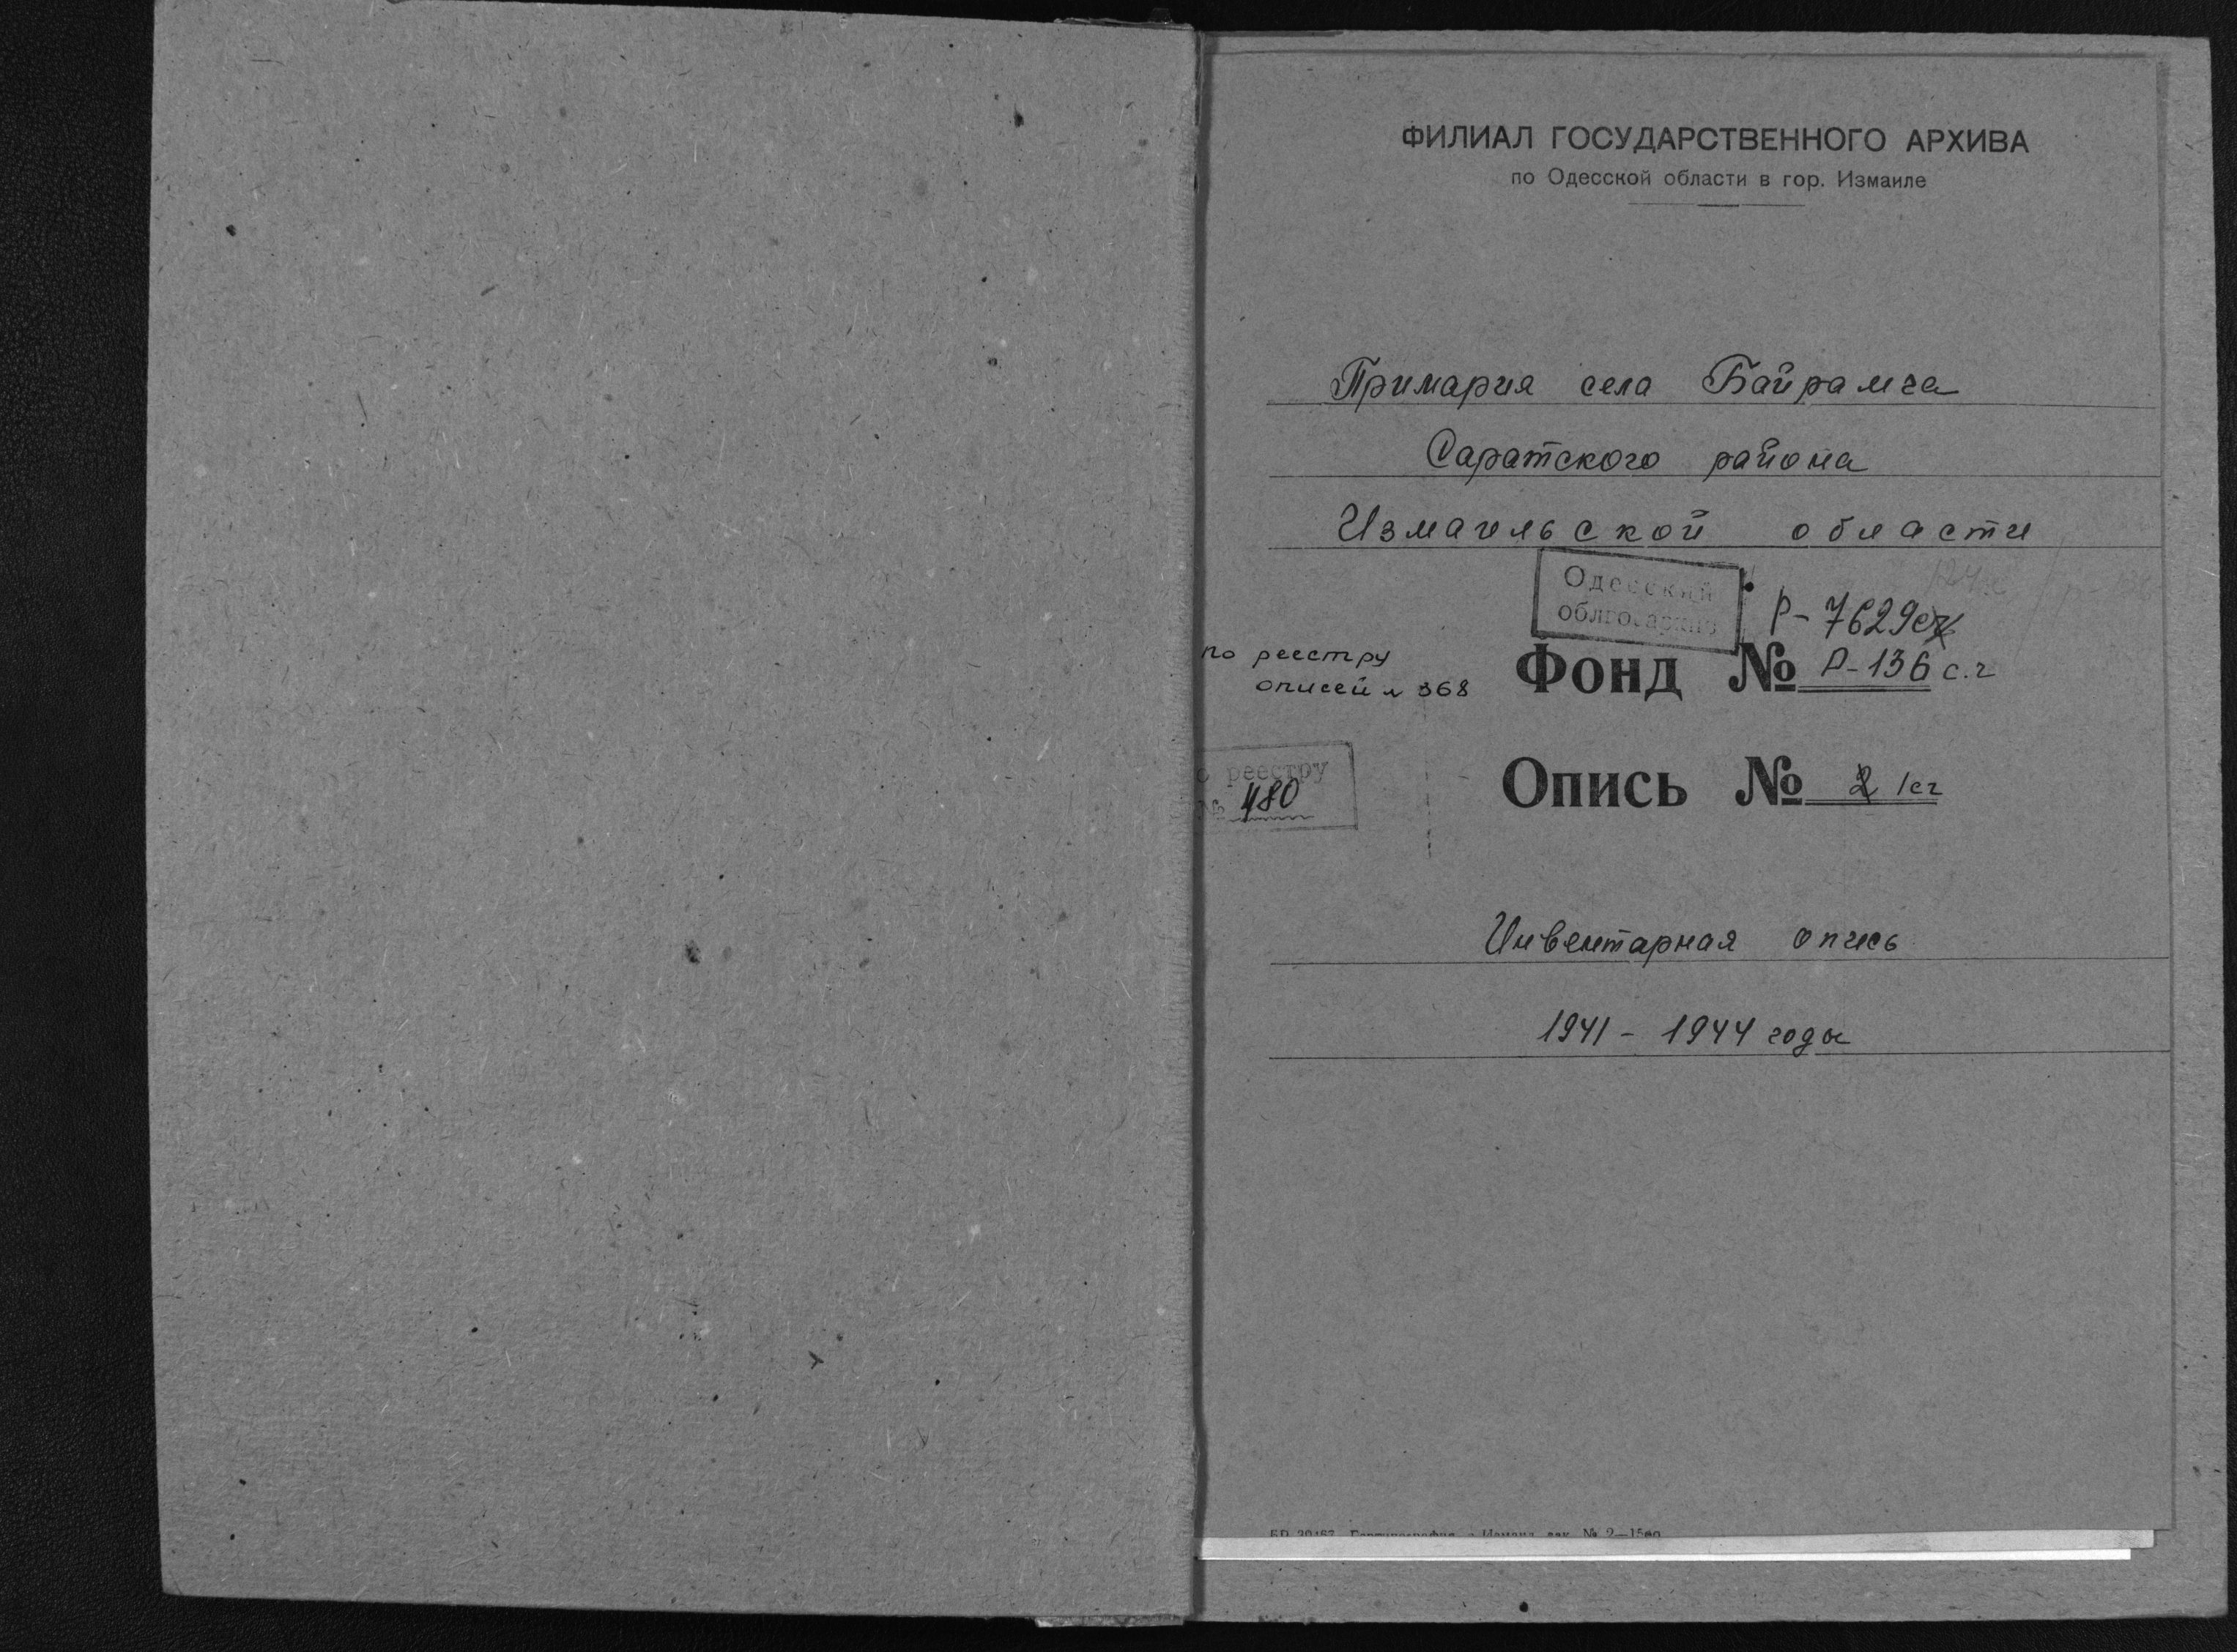 ФИЛИАЛ ГОСУДАРСТВЕННОГО АРХИВА
по Одесской области в гор. Измаиле
Примария села Байрамча
Саратского района
Измаильской области
Одесский
облгосархив
Р-7629
по реестру
описей № 368
Фонд № Р-136 с.г
реестру
№ 480
Опись № 2 1сг
Инвентарная опись
1941 - 1944 годы
№ 2—1500